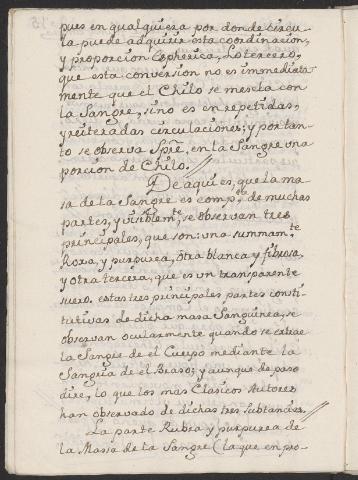 pues en qualquiera por donde circu-
la puede adquirir esta coordinacion,
y proporcion espherica, Lo tercero,
que esta conversion no es immediata-
mente que el Chilo se mescla con
la Sangre, sino es en repetidas,
y reiteradas circulaciones; y por tan-
to se observa Spre, en la Sangre una
porcion de Chilo.
De aqui es, que la ma-
sa de la Sangre es compta. de muchas
partes, y visiblemte. se observan tres
principales, que son: una summamte.
Roxa, y purpurea, otra blanca y fibrosa,
y otra tercera, que es un transparente
suero. estas tres principales partes consti-
tutivas de dicha masa Sanguinea, se
observan ocularmente quando se extrae
la Sangre de el Cuerpo mediante la
Sangria de el Brazo; y aunque de paso
dire, lo que los mas Clasicos Autores
han observado de dichas tres Substancias.
La parte Rubia y purpurea de
la Massa de la Sangre (la que en pro-